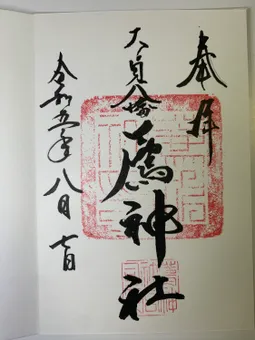 奉拝
大貞八幡
薦神社
令和五年八月七日